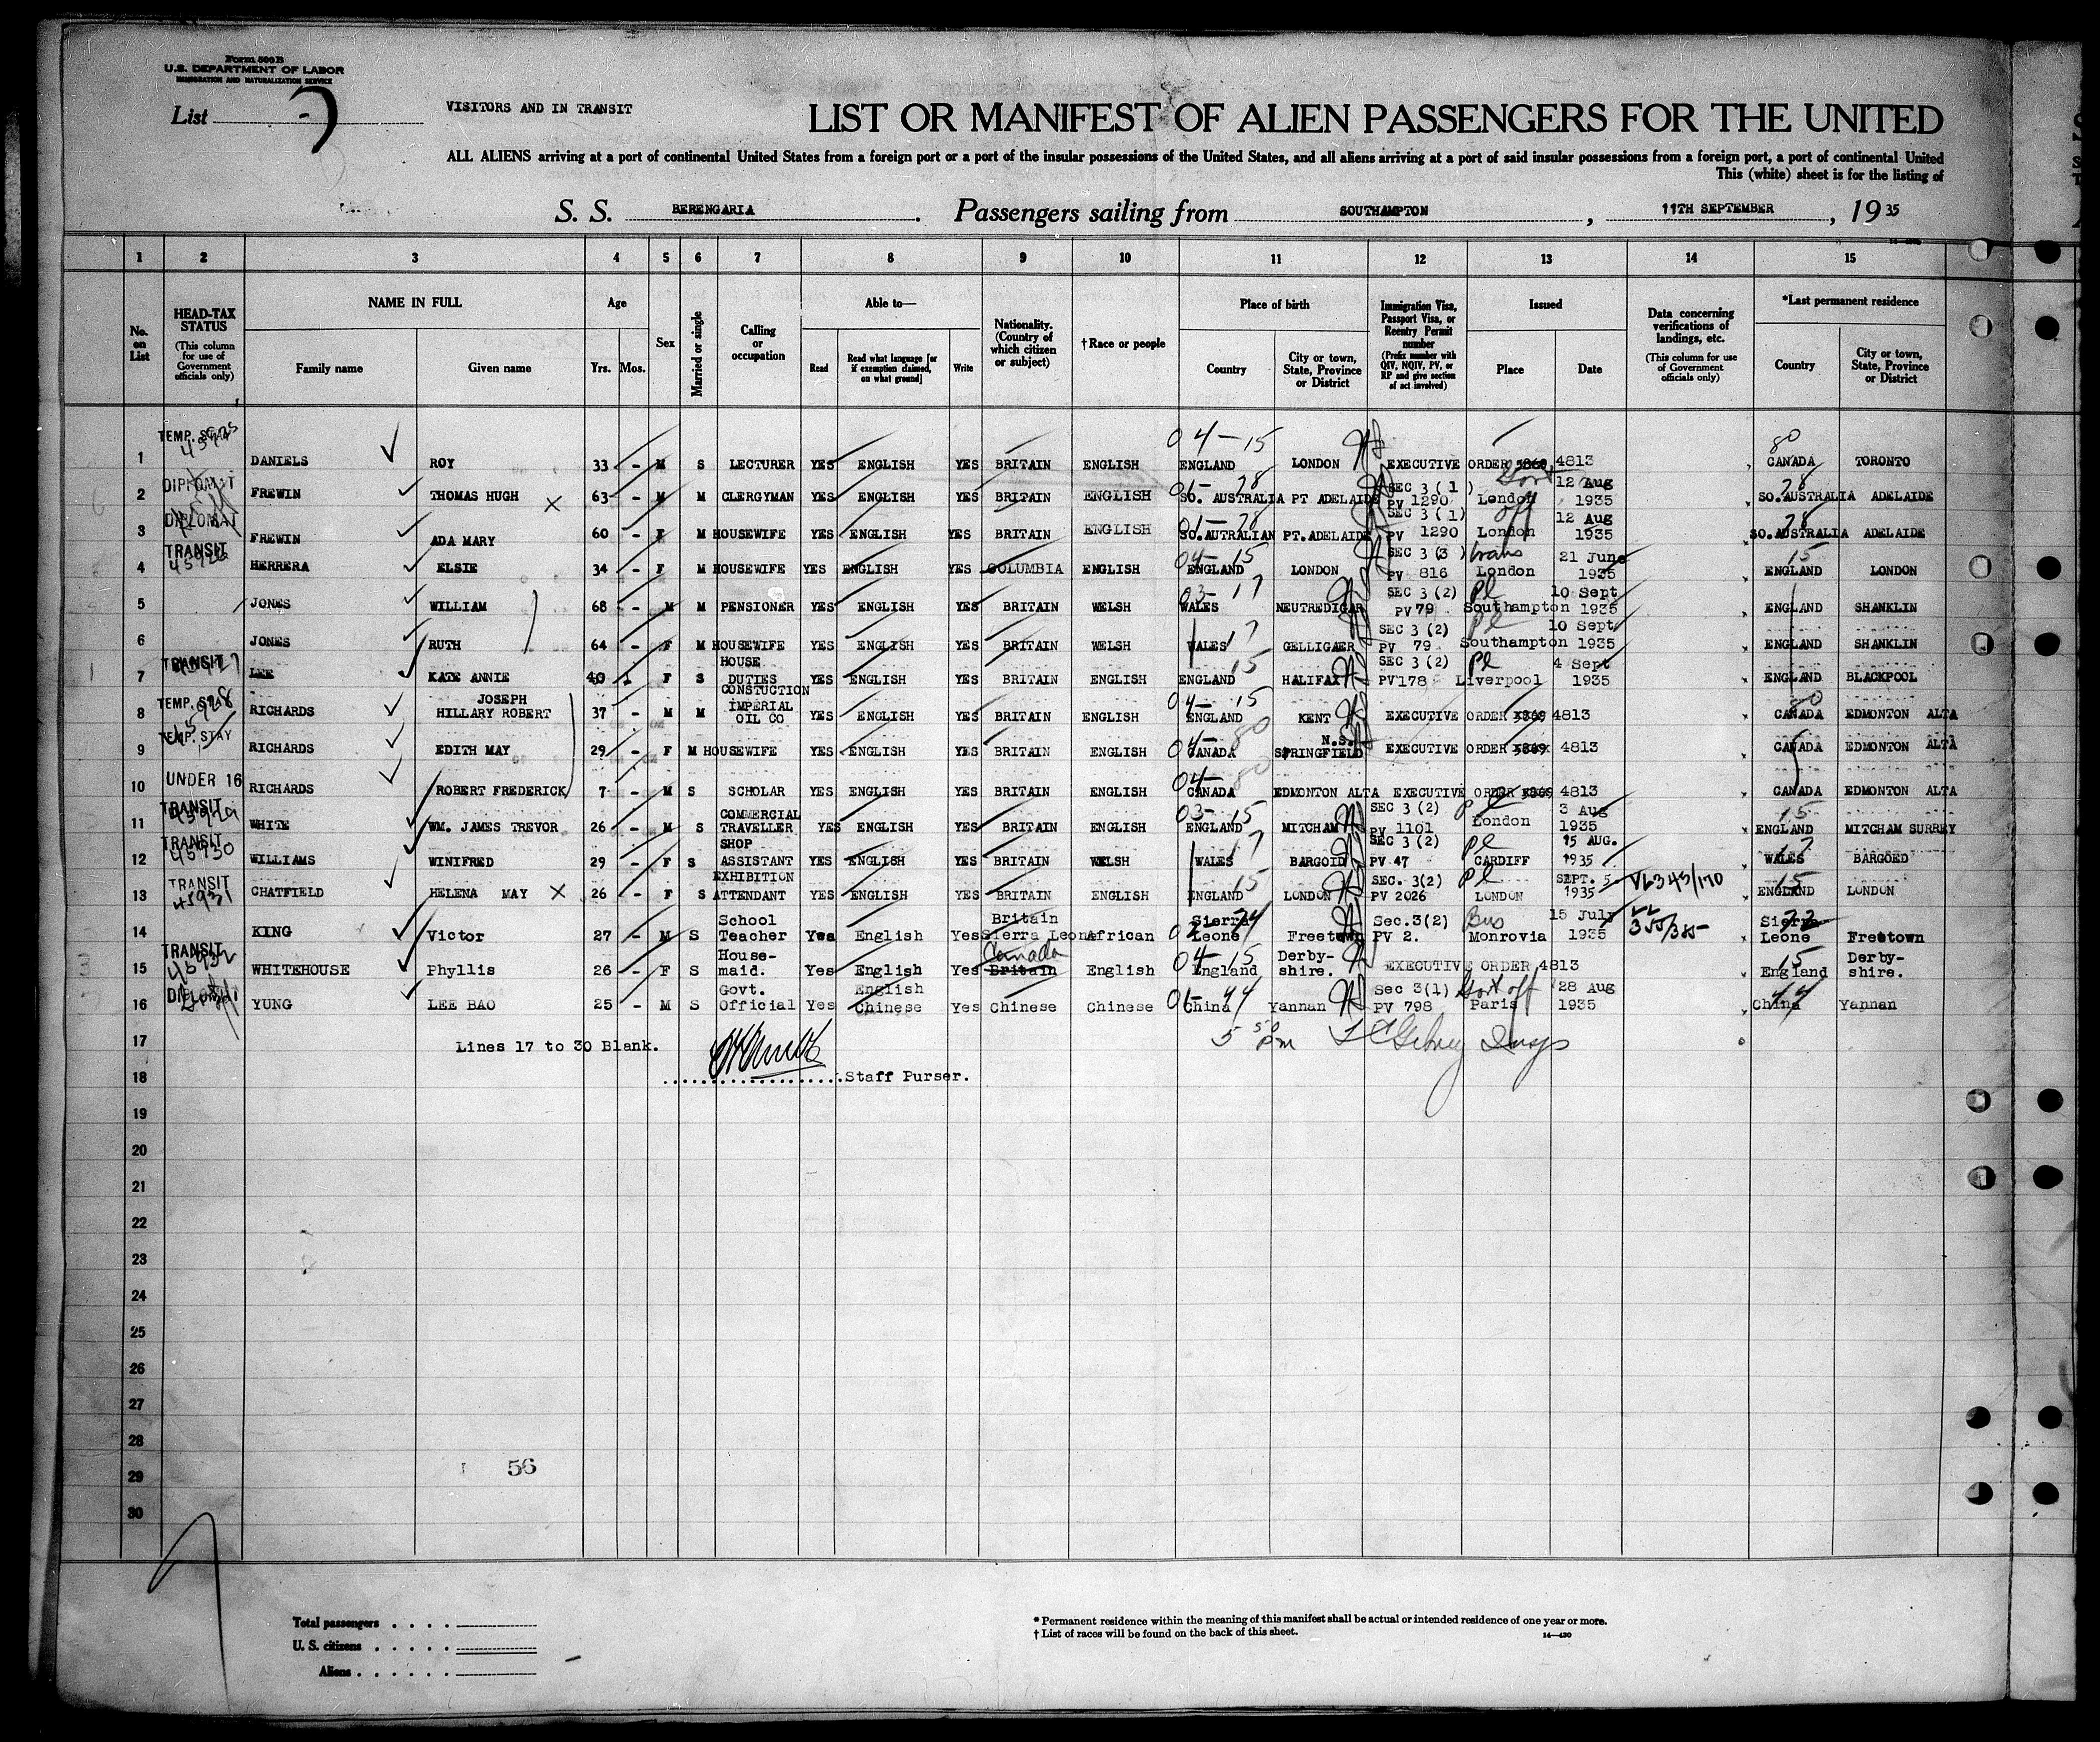 Form 500 B
U.S. DEPARTMENT OF LABOR
IMMIGRATION AND NATURALIZATION SERVICE
List
VISITORS AND IN TRANSIT
LIST OR MANIFEST OF ALIEN PASSENGERS FOR THE UNITED
ALL ALIENS arriving at a port of continental United States from a foreign port or a port of the insular possessions of the United States, and all aliens arriving at a port of said insular possessions from a foreign port, a port of continental United
This (white) sheet is for the listing of
S. S. BERENGARIA. Passengers sailing from SOUTHAMPTON, 11TH SEPTEMBER, 19 35
1 2 3 4 5 6 7 8 9 10 11 12 13 14 15
No. on List
HEAD-TAX STATUS (This column for use of Government officials only)
NAME IN FULL Family name Given name
Age Yrs. Mos.
Sex
Married or single
Calling or occupation
Able to— Read Read what language [or if exemption claimed, on what ground] Write
Nationality. (Country of which citizen or subject)
†Race or people
Place of birth Country City or town, State, Province or District
Immigration Visa, Passport Visa, or Reentry Permit number (Prefix number with QIV, NQIV, PV, or RP and give section of act involved)
Issued Place Date
Data concerning verifications of landings, etc. (This column for use of Government officials only)
*Last permanent residence Country City or town, State, Province or District
1 TEMP. STAY DANIELS ROY 33 - M S LECTURER YES ENGLISH YES BRITAIN ENGLISH 04-15 ENGLAND LONDON EXECUTIVE ORDER 5869 4813 80 CANADA TORONTO
2 DIPLOMAT FREWIN THOMAS HUGH X 63 - M M CLERGYMAN YES ENGLISH YES BRITAIN ENGLISH 01-78 SO. AUSTRALIA PT ADELAIDE SEC 3 (1) PV 1290 London 12 Aug 1935 78 SO.AUSTRALIA ADELAIDE
3 DIPLOMAT FREWIN ADA MARY 60 - F M HOUSEWIFE YES ENGLISH YES BRITAIN ENGLISH 01-78 SO.AUTRALIAN PT.ADELAIDE SEC 3 (1) PV 1290 London off 12 Aug 1935 78 SO.AUSTRALIA ADELAIDE
4 TRANSIT 45926 HERRERA ELSIE 34 - F M HOUSEWIFE YES ENGLISH YES COLUMBIA ENGLISH 04-15 ENGLAND LONDON SEC 3 (3) PV 816 trans London 21 June 1935 15 ENGLAND LONDON
5 JONES WILLIAM 68 - M M PENSIONER YES ENGLISH YES BRITAIN WELSH 03-17 WALES NEUTREDIGAR SEC 3 (2) PV 79 Pl Southampton 10 Sept 1935 ENGLAND SHANKLIN
6 JONES RUTH 64 - F M HOUSEWIFE YES ENGLISH YES BRITAIN WELSH 17 WALES GELLIGAER SEC 3 (2) PV 79 Pl Southampton 10 Sept 1935 ENGLAND SHANKLIN
7 TRANSIT 45927 LEE KATE ANNIE 40 - F S HOUSE DUTIES YES ENGLISH YES BRITAIN ENGLISH 15 ENGLAND HALIFAX SEC 3 (2) PV 178 Pl Liverpool 4 Sept 1935 ENGLAND BLACKPOOL
8 TEMP. STAY 45928 RICHARDS JOSEPH HILLARY ROBERT 37 - M M CONSTUCTION IMPERIAL OIL CO YES ENGLISH YES BRITAIN ENGLISH 04-15 ENGLAND KENT EXECUTIVE ORDER 5869 4813 80 CANADA EDMONTON ALTA
9 TEMP. STAY RICHARDS EDITH MAY 29 - F M HOUSEWIFE YES ENGLISH YES BRITAIN ENGLISH 04-80 CANADA N.S. SPRINGFIELD EXECUTIVE ORDER 5869 4813 CANADA EDMONTON ALTA
10 UNDER 16 RICHARDS ROBERT FREDERICK 7 - M S SCHOLAR YES ENGLISH YES BRITAIN ENGLISH 04-80 CANADA EDMONTON ALTA EXECUTIVE ORDER 5869 4813 CANADA EDMONTON ALTA
11 TRANSIT 45929 WHITE WM. JAMES TREVOR 26 - M S COMMERCIAL TRAVELLER YES ENGLISH YES BRITAIN ENGLISH 03-15 ENGLAND MITCHAM SEC 3 (2) PV 1101 Pl London 3 Aug 1935 15 ENGLAND MITCHAM SURREY
12 TRANSIT 45930 WILLIAMS WINIFRED 29 - F S SHOP ASSISTANT YES ENGLISH YES BRITAIN WELSH 17 WALES BARGOID SEC 3 (2) PV 47 Pl CARDIFF 15 AUG. 1935 17 WALES BARGOED
13 TRANSIT 45931 CHATFIELD HELENA MAY X 26 - F S EXHIBITION ATTENDANT YES ENGLISH YES BRITAIN ENGLISH 15 ENGLAND LONDON SEC. 3(2) PV 2026 Pl LONDON SEPT. 5 1935 VL343/170 15 ENGLAND LONDON
14 KING Victor 27 - M S School Teacher Yes English Yes Britain Sierra Leone African Sierra Leone Freetown Sec.3(2) PV 2. Bus Monrovia 15 July 1935 355/385 Sierra Leone Freetown
15 TRANSIT 45932 WHITEHOUSE Phyllis 26 - F S House-maid. Yes English Yes Canada Britain English 04-15 England Derby-shire. EXECUTIVE ORDER 4813 15 England Derby-shire.
16 DIPLOMAT YUNG LEE BAO 25 - M S Govt. Official Yes English Chinese Yes Chinese Chinese 01-44 China Yannan Sec 3(1) PV 798 Govt off Paris 28 Aug 1935 44 China Yannan
17 Lines 17 to 30 Blank. 5 50 pm
18 Staff Purser.
19
20
21
22
23
24
25
26
27
28
29 56
30
Total passengers
U. S. citizens
Aliens
* Permanent residence within the meaning of this manifest shall be actual or intended residence of one year or more.
† List of races will be found on the back of this sheet.
14—430